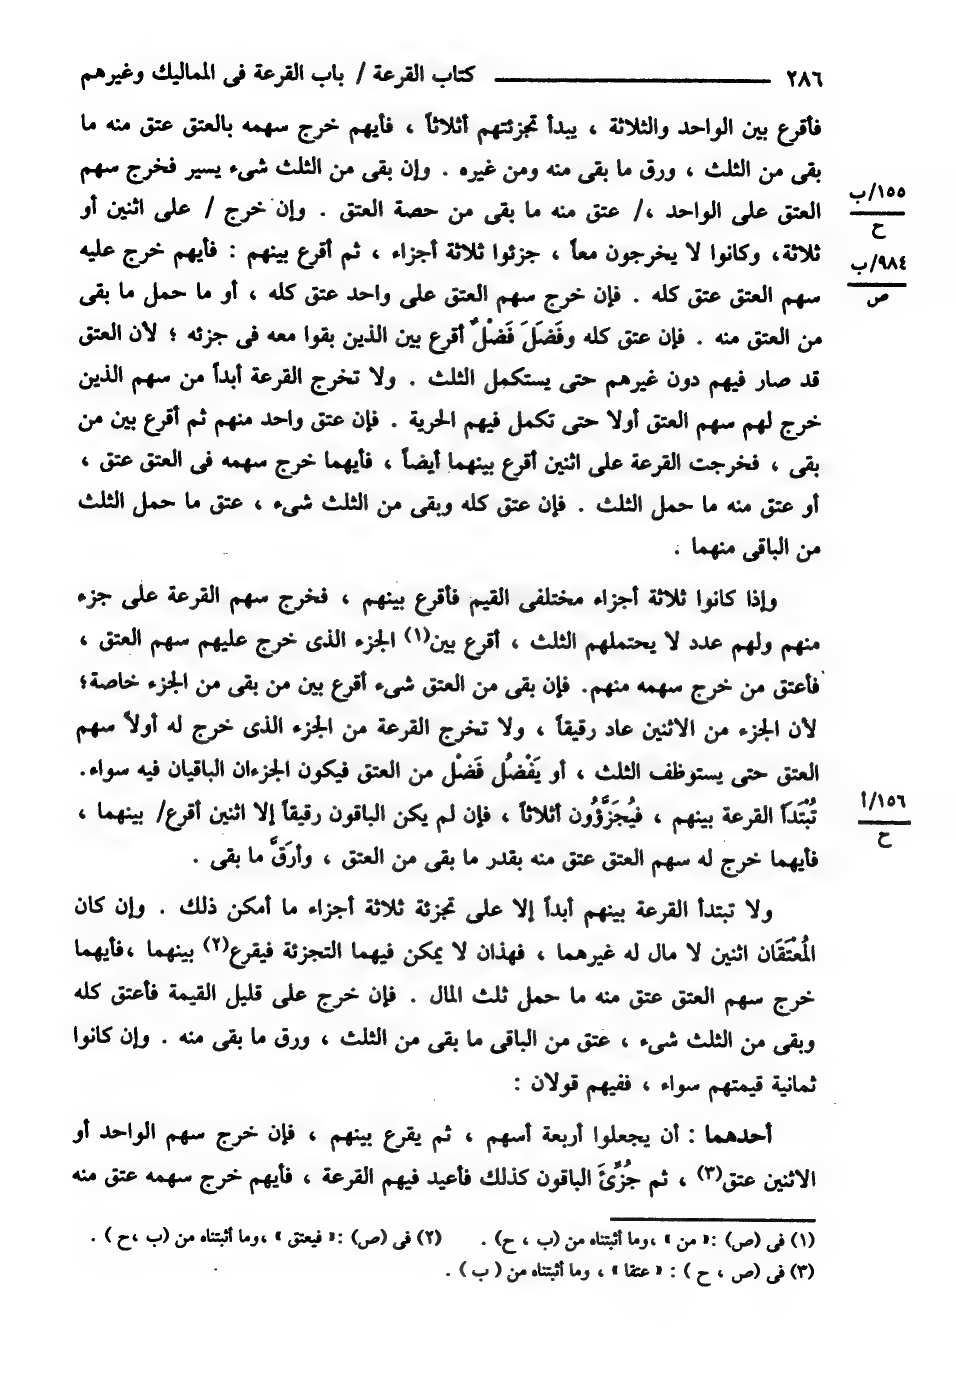 ٢٨٦ كتاب القرعة / باب القرعة فى المماليك وغيرهم
فأقرع بين الواحد والثلاثة ، يبدأ تجزئتهم أثلاثاً ، فأيهم خرج سهمه بالعتق عتق منه ما
بقى من الثلث ، ورق ما بقى منه ومن غيره . وإن بقى من الثلث شىء يسير فخرج سهم
العتق على الواحد ،/ عتق منه ما بقى من حصة العتق . وإن خرج / على اثنين أو
١٥٥/ب
ح
ثلاثة، وكانوا لا يخرجون معاً ، جزئوا ثلاثة أجزاء ، ثم أقرع بينهم : فأيهم خرج عليه
٩٨٤/ب
ص
سهم العتق عتق كله . فإن خرج سهم العتق على واحد عتق كله ، أو ما حمل ما بقى
من العتق منه . فإن عتق كله وفَضَلَ فَضْلٌ أقرع بين الذين بقوا معه فى جزئه ؛ لأن العتق
قد صار فيهم دون غيرهم حتى يستكمل الثلث . ولا تخرج القرعة أبداً من سهم الذين
خرج لهم سهم العتق أولا حتى تكمل فيهم الحرية . فإن عتق واحد منهم ثم أقرع بين من
بقى ، فخرجت القرعة على اثنين أقرع بينهما أيضاً ، فأيهما خرج سهمه فى العتق عتق ،
أو عتق منه ما حمل الثلث . فإن عتق كله وبقى من الثلث شىء ، عتق ما حمل الثلث
من الباقى منهما .
وإذا كانوا ثلاثة أجزاء مختلفى القيم فأقرع بينهم ، فخرج سهم القرعة على جزء
منهم ولهم عدد لا يحتملهم الثلث ، أقرع بين(١) الجزء الذى خرج عليهم سهم العتق ،
فأعتق من خرج سهمه منهم. فإن بقى من العتق شىء أقرع بين من بقى من الجزء خاصة؛
لأن الجزء من الاثنين عاد رقيقاً ، ولا تخرج القرعة من الجزء الذى خرج له أولاً سهم
العتق حتى يستوظف الثلث ، أو يَفْضُل فَضْل من العتق فيكون الجزءان الباقيان فيه سواء.
تُبْتَدَأ القرعة بينهم ، فيُجَزَّؤُون أثلاثاً ، فإن لم يكن الباقون رقيقاً إلا اثنين أقرع/ بينهما ،
١٥٦/أ
ح
فأيهما خرج له سهم العتق عتق منه بقدر ما بقى من العتق ، وأرَقَّ ما بقى .
ولا تبتدأ القرعة بينهم أبداً إلا على تجزئة ثلاثة أجزاء ما أمكن ذلك . وإن كان
المُعتَقَان اثنين لا مال له غيرهما ، فهذان لا يمكن فيهما التجزئة فيقرع(٢) بينهما ،فأيهما
خرج سهم العتق عتق منه ما حمل ثلث المال . فإن خرج على قليل القيمة فأعتق كله
وبقى من الثلث شىء ، عتق من الباقى ما بقى من الثلث ، ورق ما بقى منه . وإن كانوا
ثمانية قيمتهم سواء ، ففيهم قولان :
أحدهما : أن يجعلوا أربعة أسهم ، ثم يقرع بينهم ، فإن خرج سهم الواحد أو
الاثنين عتق(٣) ، ثم جُزِّئَ الباقون كذلك فأعيد فيهم القرعة ، فأيهم خرج سهمه عتق منه
(١) فى (ص) :« من » ،وما أثبتناه من (ب ، ح) . (٢) فى (ص) :« فيعتق » ،وما أثبتناه من (ب ،ح ) .
(٣) فى (ص ، ح ) : « عتقا » ، وما أثبتناه من ( ب ) .